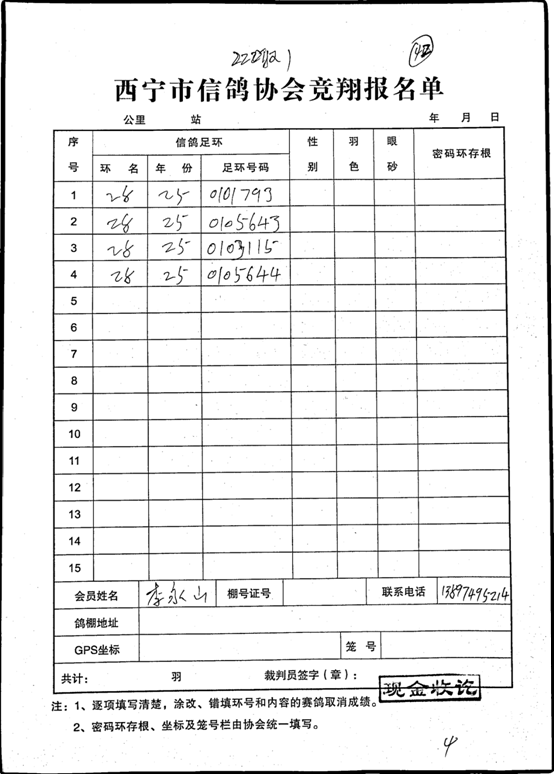 42
西宁市信鸽协会竞翔报名单
公里 站 年 月 日
序号 信鸽足环 性别 羽色 眼砂 密码环存根
环名 年份 足环号码
1 28 25 0101793
2 28 25 0105643
3 28 25 0103115
4 28 25 0105644
5
6
7
8
9
10
11
12
13
14
15
会员姓名 李永山 棚号证号 联系电话 13897495214
鸽棚地址
GPS坐标 笼号
共计： 羽 裁判员签字（章）：
现金收讫
注：1、逐项填写清楚，涂改、错填环号和内容的赛鸽取消成绩。
2、密码环存根、坐标及笼号栏由协会统一填写。
4